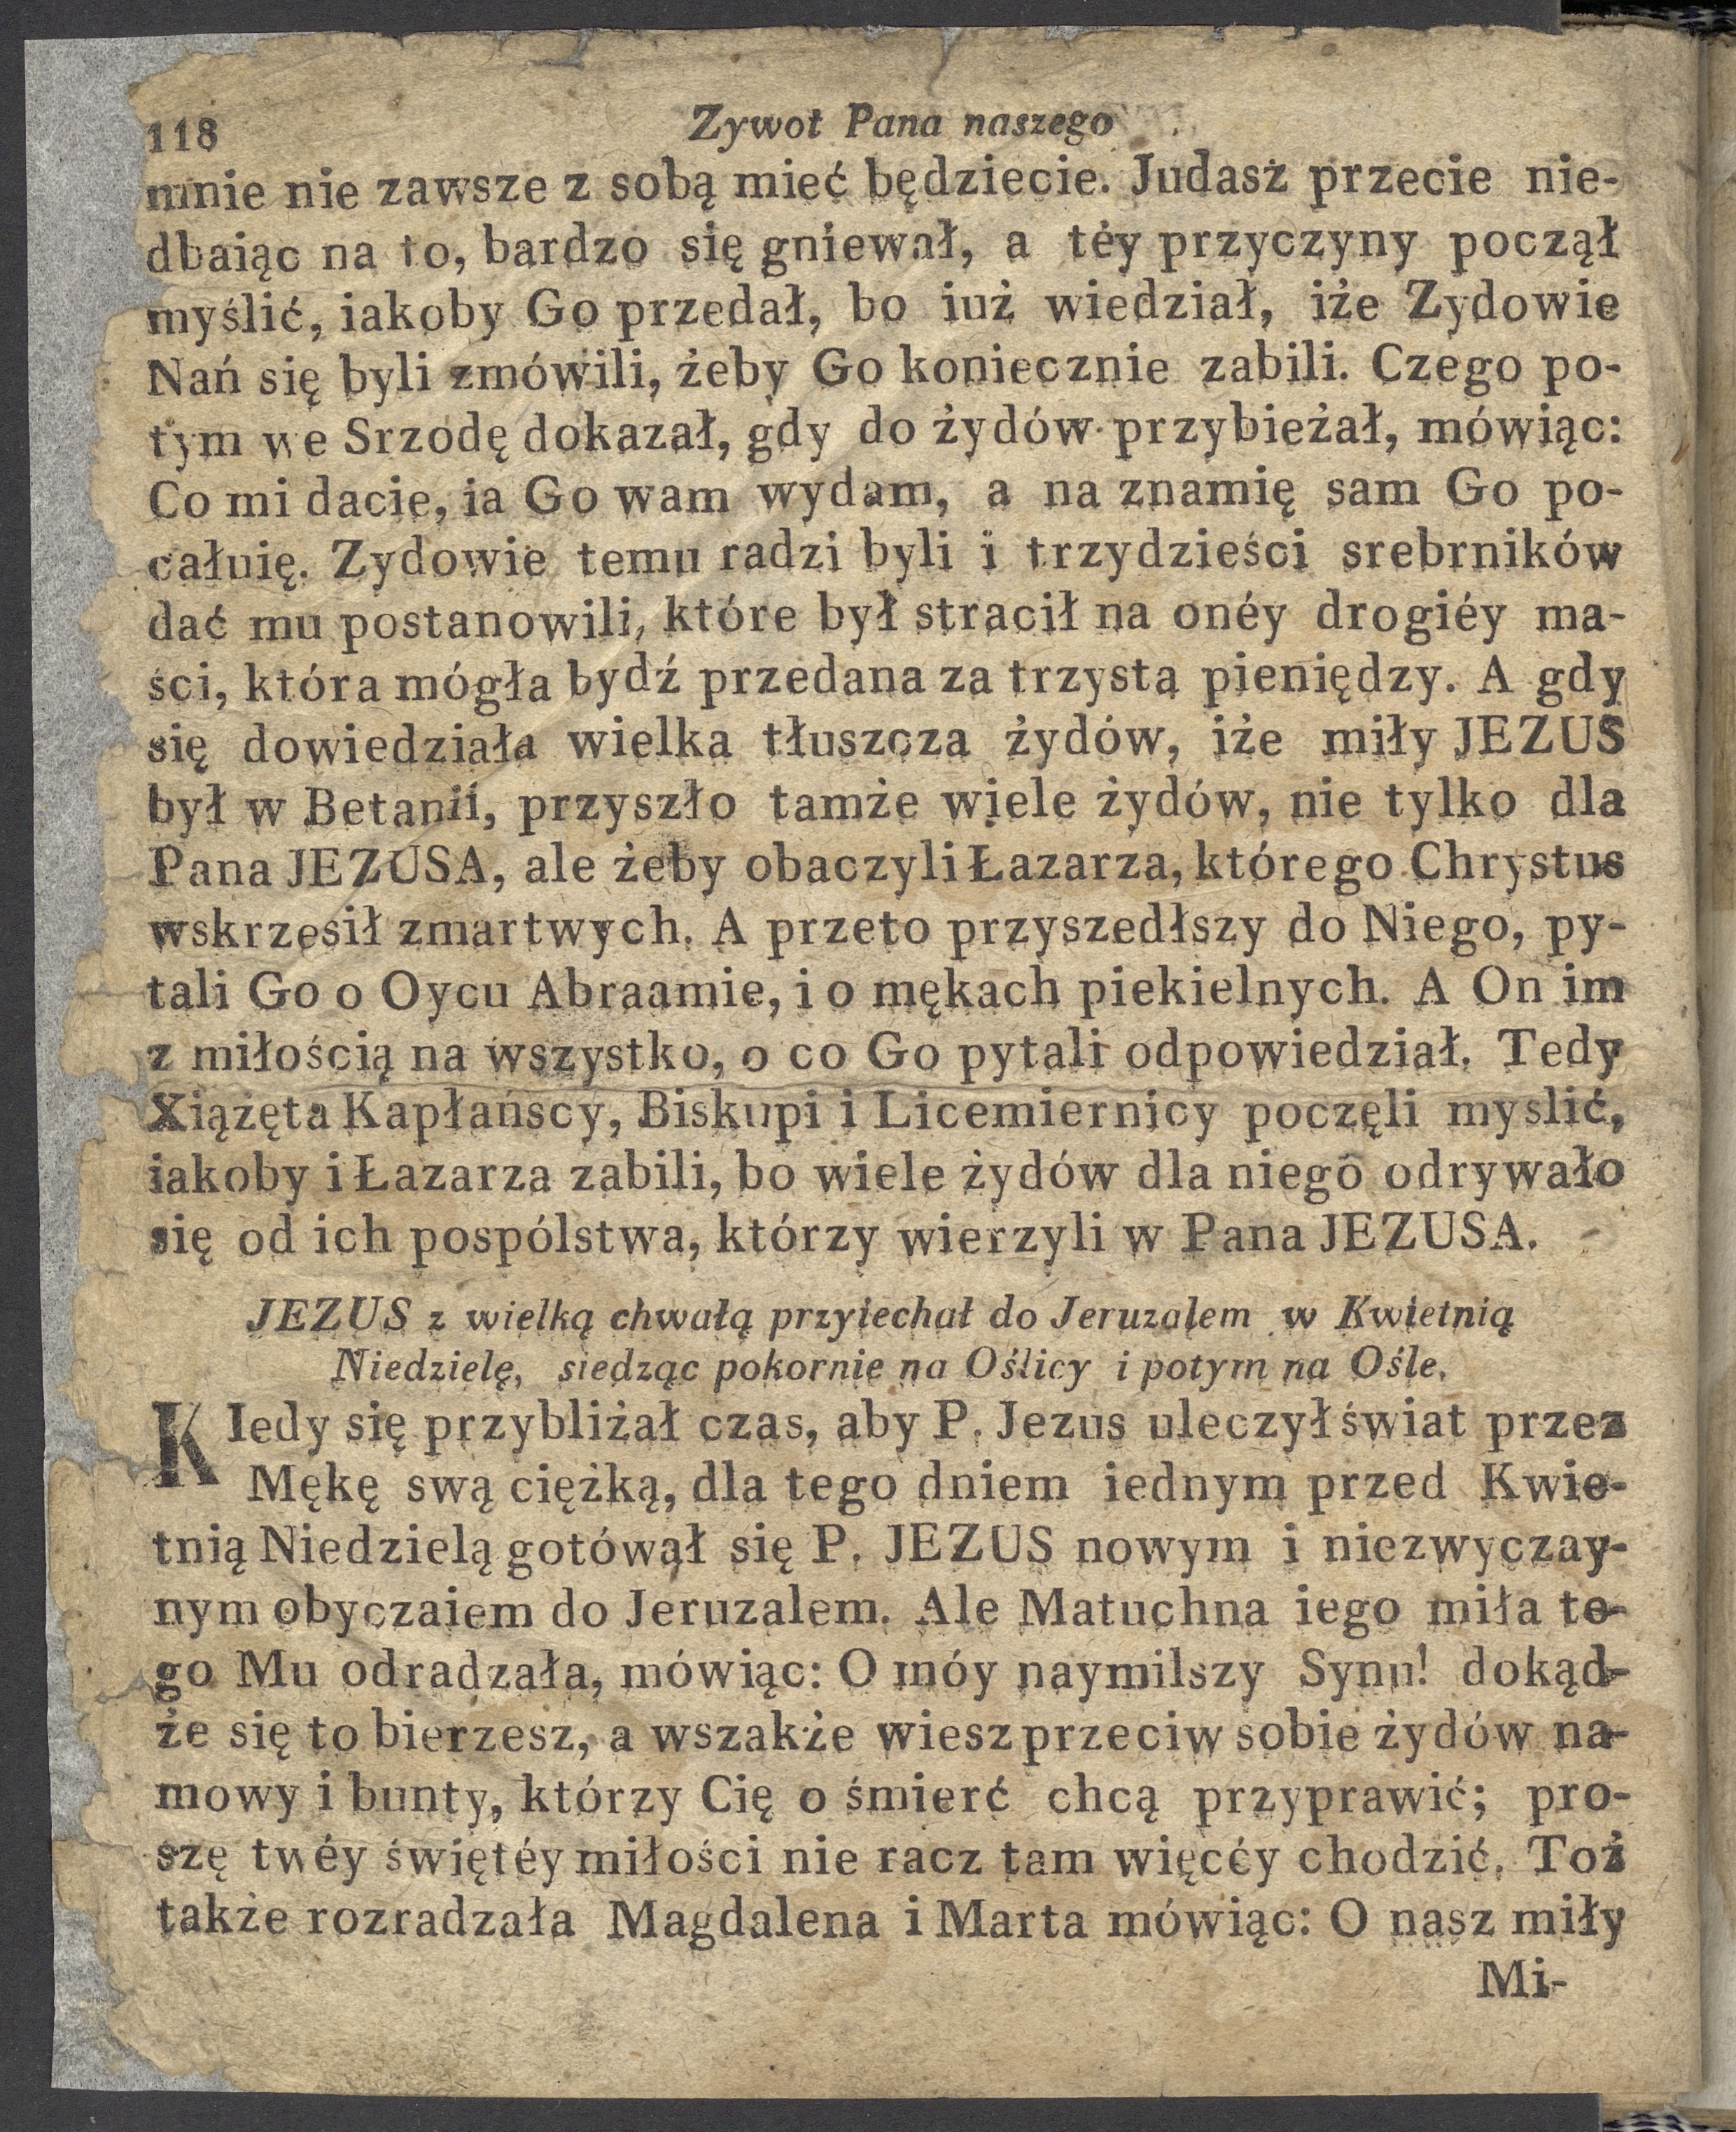 118 Zywot Pana naszego
mnie nie zawsze z sobą mieć będziecie. Judasz przecie nie-
dbaiąc na to, bardzo się gniewał, a téy przyczyny począł
myślić, iakoby Go przedał, bo iuż wiedział, iże Zydowie
Nań się byli zmówili, żeby Go koniecznie zabili. Czego po-
tym we Srzodę dokazał, gdy do żydów przybieżał, mówiąc:
Co mi dacie, ia Go wam wydam, a na znamię sam Go po-
całuię. Zydowie temu radzi byli i trzydzieści srebrników
dać mu postanowili, które był stracił na onéy drogiéy ma-
ści, która mógła bydź przedana za trzystą pieniędzy. A gdy
się dowiedziała wielka tłuszcza żydów, iże miły JEZUS
był w Betanii, przyszło tamże wiele żydów, nie tylko dla
Pana JEZUSA, ale żeby obaczyli Łazarza, którego Chrystus
wskrzesił zmartwych. A przeto przyszedłszy do Niego, py-
tali Go o Oycu Abraamie, i o mękach piekielnych. A On im
z miłością na wszystko, o co Go pytali odpowiedział. Tedy
Xiążęta Kapłańscy, Biskupi i Licemiernicy poczęli myslić,
iakoby i Łazarza zabili, bo wiele żydów dla niego odrywało
się od ich pospólstwa, którzy wierzyli w Pana JEZUSA.
JEZUS z wielką chwałą przyiechał do Jeruzalem w Kwietnią
Niedzielę, siedząc pokornie na Oślicy i potym na Ośle.
KIedy się przybliżał czas, aby P. Jezus uleczył świat przez
Mękę swą ciężką, dla tego dniem iednym przed Kwie-
tnią Niedzielą gotówał się P. JEZUS nowym i niezwyczay-
nym obyczaiem do Jeruzalem. Ale Matuchna iego miła te-
go Mu odradzała, mówiąc: O móy naymilszy Synu! dokąd-
że się to bierzesz, a wszakże wiesz przeciw sobie żydów na-
mowy i bunty, którzy Cię o śmierć chcą przyprawić; pro-
szę twéy świętéy miłości nie racz tam więcéy chodzić. Toż
także rozradzała Magdalena i Marta mówiąc: O nasz miły
Mi-